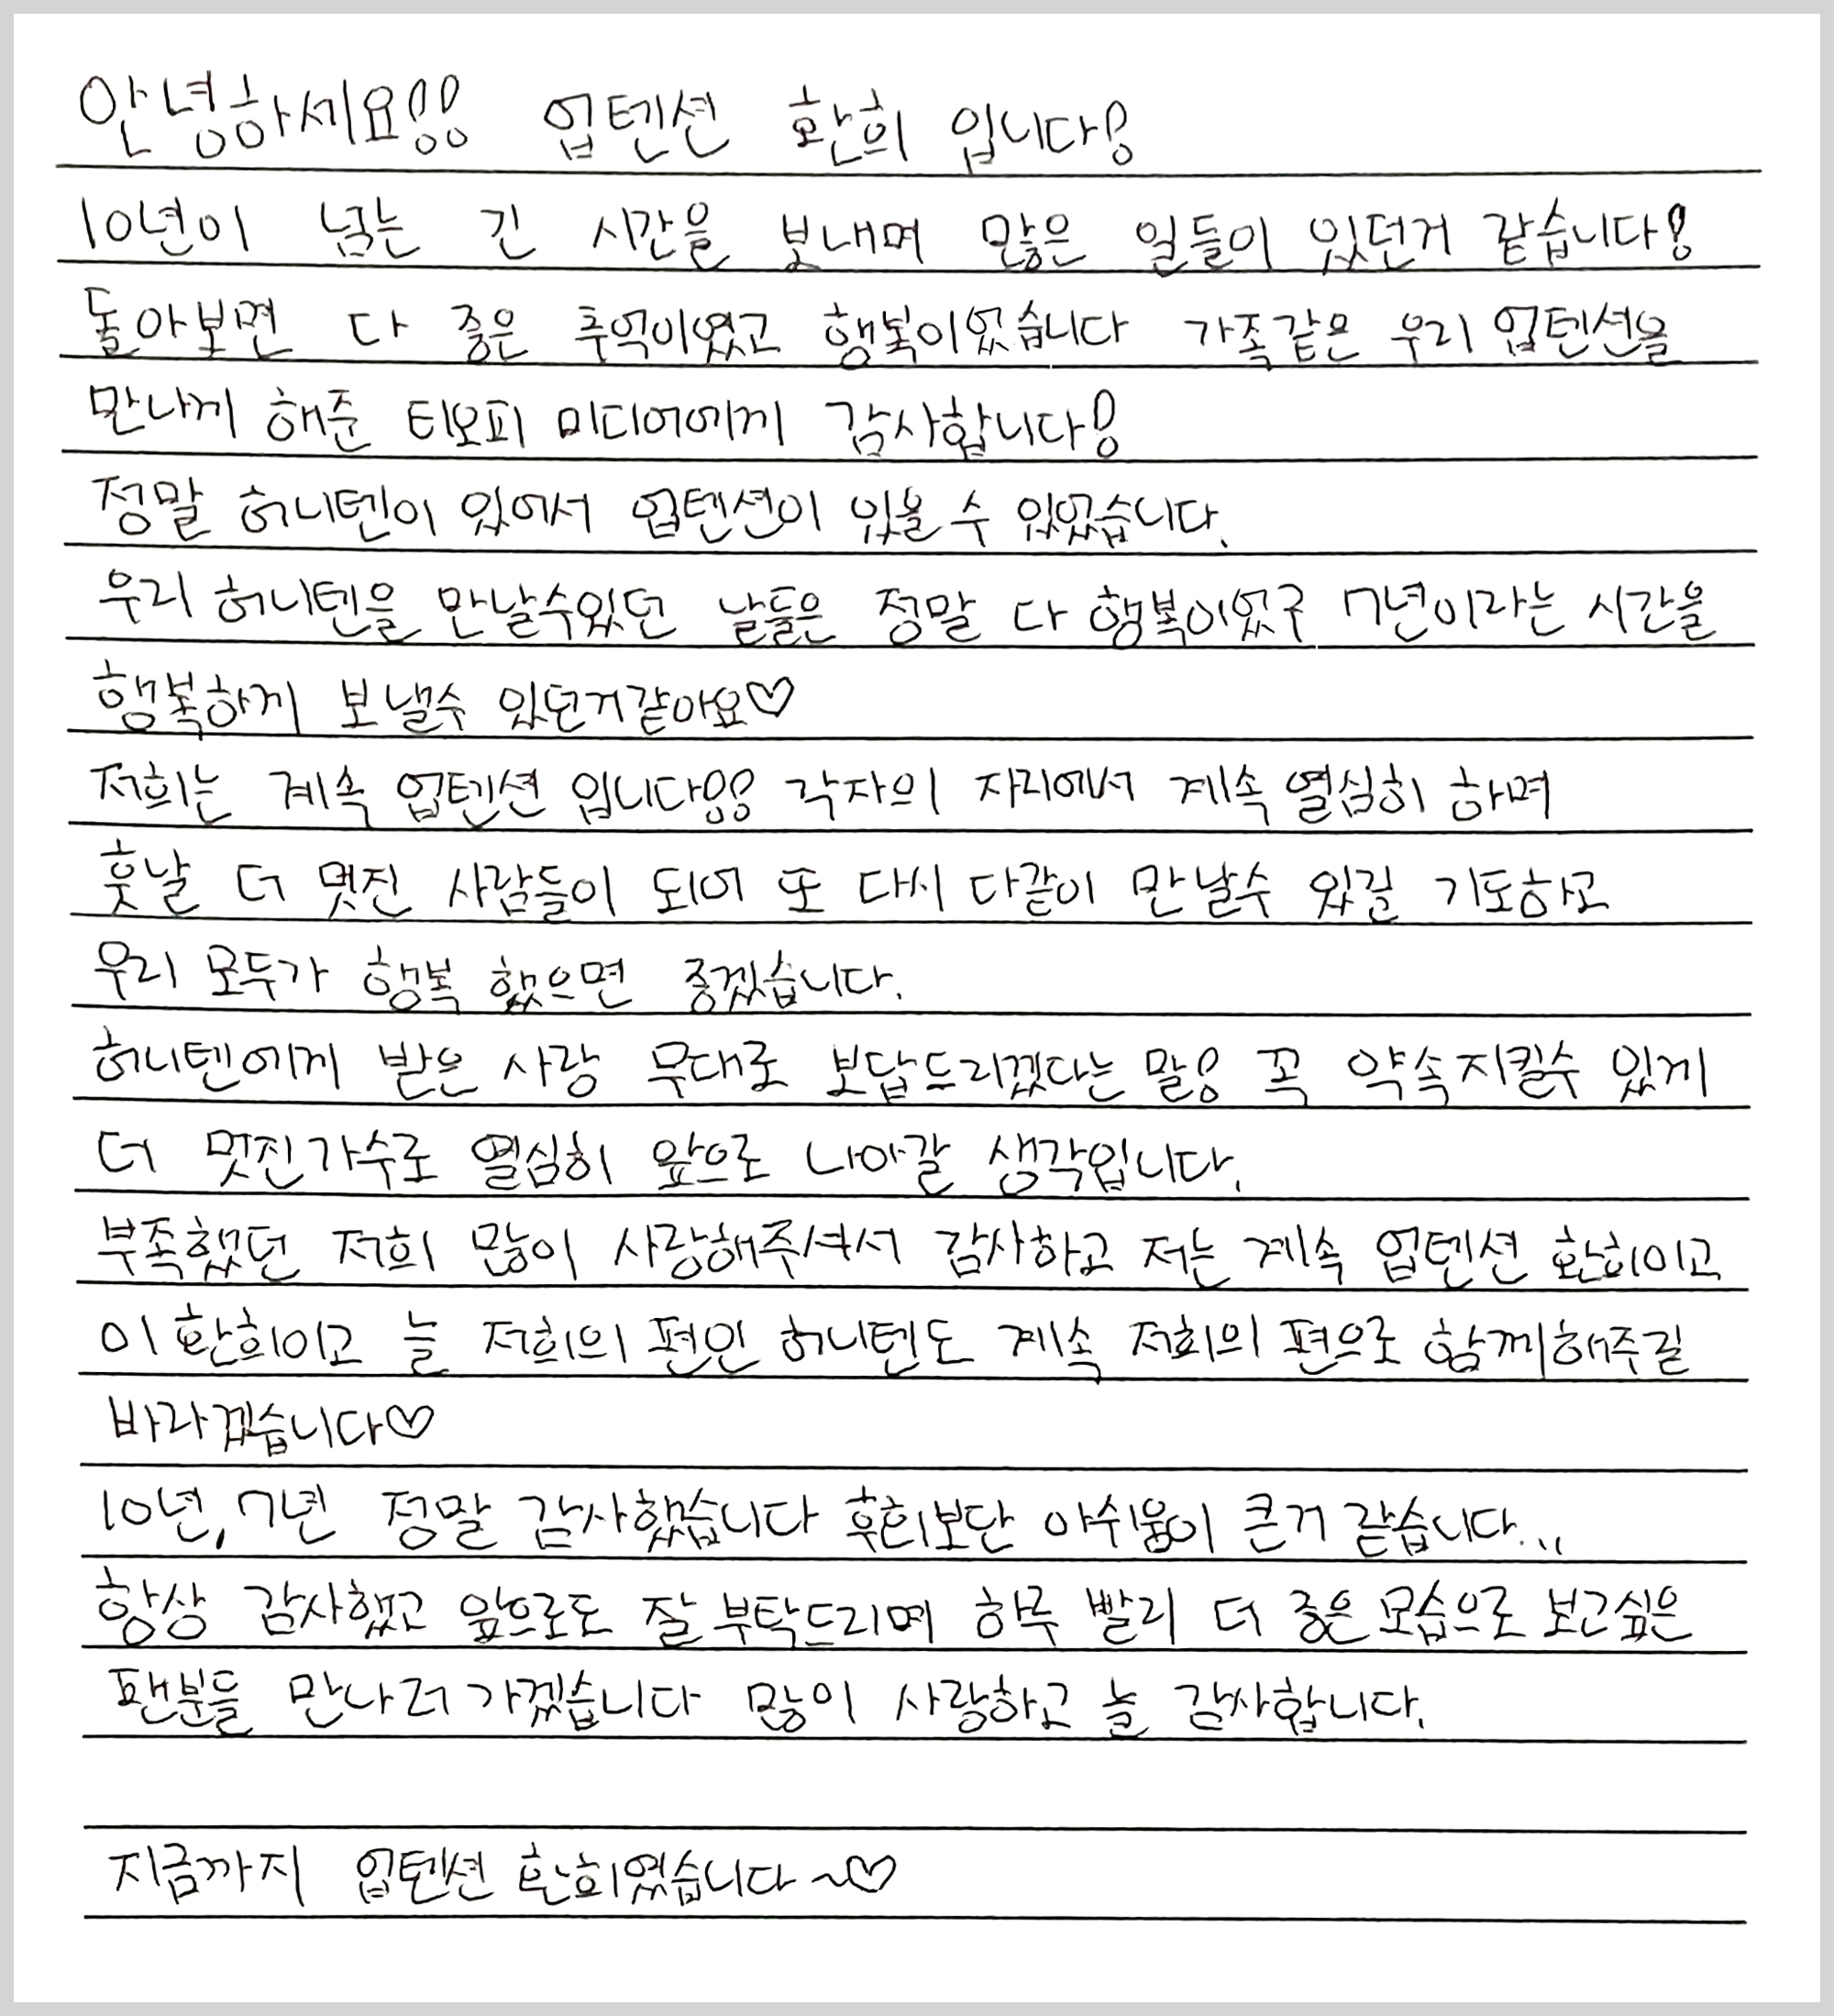 안녕하세요!!! 업텐션 환희 입니다!
10년이 넘는 긴 시간을 보내며 많은 일들이 있던거 같습니다!
돌아보면 다 좋은 추억이였고 행복이었습니다 가족같은 우리 업텐션을
만나게 해준 티오피 미디어에게 감사합니다!
정말 허니텐이 있어서 업텐션이 있을 수 있었습니다.
우리 허니텐을 만날수있던 날들은 정말 다 행복이었구 7년이라는 시간을
행복하게 보낼수 있던거같아요♡
저희는 계속 업텐션 입니다!!! 각자의 자리에서 계속 열심히 하며
훗날 더 멋진 사람들이 되어 또 다시 다같이 만날수 있길 기도하고
우리 모두가 행복 했으면 좋겠습니다.
허니텐에게 받은 사랑 무대로 보답드리겠다는 말! 꼭 약속지킬수 있게
더 멋진가수로 열심히 앞으로 나아갈 생각입니다.
부족했던 저희 많이 사랑해주셔서 감사하고 저는 계속 업텐션 환희이고
이환희이고 늘 저희의 편인 허니텐도 계속 저희의 편으로 함께해주길
바라겠습니다♡
10년, 7년 정말 감사했습니다 후회보단 아쉬움이 큰거 같습니다...
항상 감사했고 앞으로도 잘 부탁드리며 하루 빨리 더 좋은 모습으로 보고싶은
팬분들 만나러 가겠습니다 많이 사랑하고 늘 감사합니다.
지금까지 업텐션 환희였습니다~♡